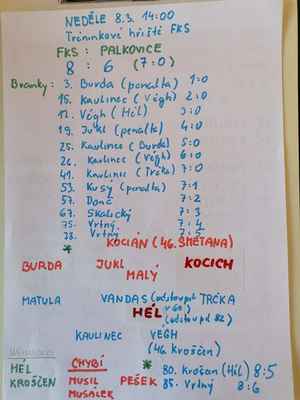 NEDĚLE 8.3. 14:00
Tréninkové hřiště FKS
FKS : PALKOVICE
8 : 6 (7:0)
Branky: 3. Burda (penalta) 1:0
15. Kaulinec (Végh) 2:0
17. Végh (Hél) 3:0
19. Jukl (penalta) 4:0
25. Kaulinec (Burda) 5:0
26. Kaulinec (Végh) 6:0
41. Kaulinec (Trčka) 7:0
53. Kusý (penalta) 7:1
57. Donč 7:2
67. Skalický 7:3
75. Vrtný 7:4
78. Vrtný 7:5
* KOCIÁN (46. SMETANA)
BURDA JUKL KOCICH
MALÝ
MATULA VANDAS (odstoupil TRČKA
v 60.)
HÉL (odstoupil 82.)
KAULINEC VÉGH
(46. Kroščen)
NÁHRADNÍCI
HÉL CHYBÍ * 80. Krošcen (Hél) 8:5
KROŠČEN MUSIL PEŠEK 85. Vrtný 8:6
MUSÁLEK